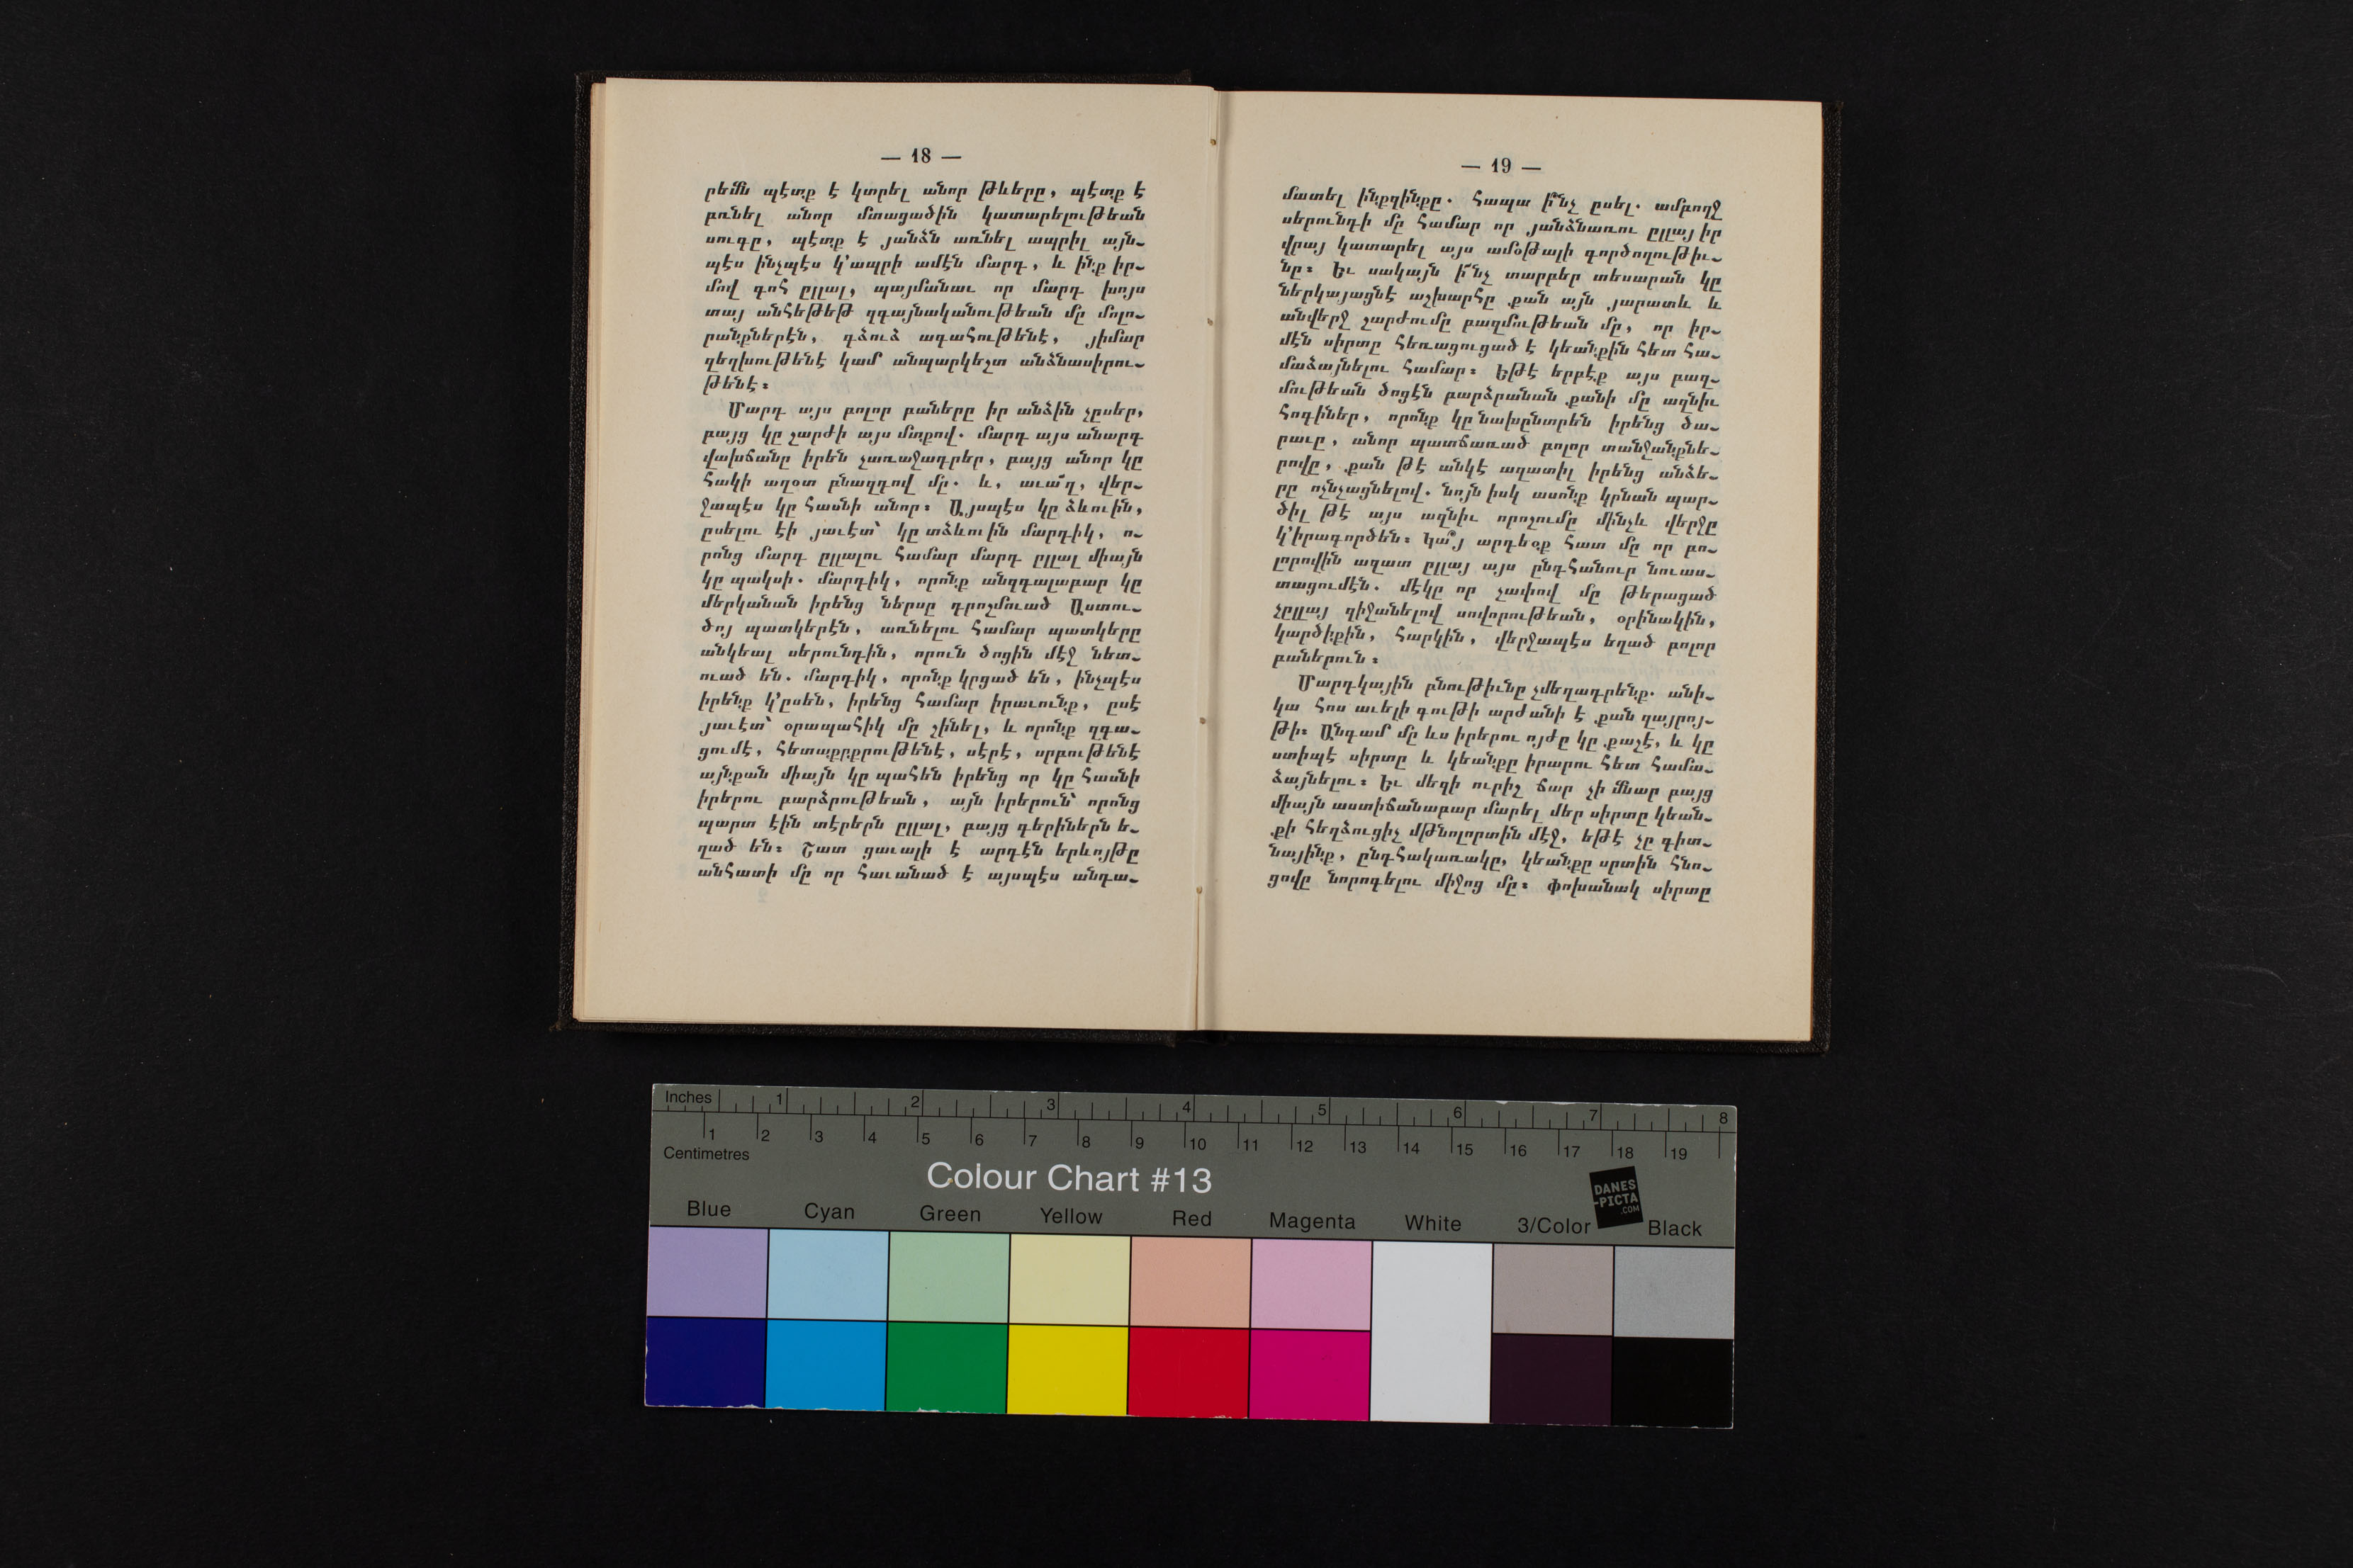 — 18 —
րեմն պէտք է կտրել անոր թևերը, պէտք է
բռնել անոր մտացածին կատարելութեան
սուգը, պէտք է յանձն առնել ապրիլ այն-
պէս ինչպէս կ՚ապրի ամէն մարդ, և ինք իր-
մով գոհ ըլլալ, պայմանաւ որ մարդ խոյս
տայ անհեթեթ զգայնականութեան մը մոլո-
րանքներէն, գձուձ ագահութենէ, յիմար
զեղխութենէ կամ անպարկեշտ անձնասիրու-
թենէ։
Մարդ այս բոլոր բաները իր անձին չըսեր,
բայց կը շարժի այս մտքով. մարդ այս անարգ
վախճանը իրեն չառաջադրեր, բայց անոր կը
հակի աղօտ բնազդով մը. և, աւա՜ղ, վեր-
ջապէս կը հասնի անոր։ Այսպէս կը ձևուին,
ըսելու էի յաւէտ՝ կը տձևուին մարդիկ, ո-
րոնց մարդ ըլլալու համար մարդ ըլլալ միայն
կը պակսի. մարդիկ, որոնք անզգալաբար կը
մերկանան իրենց ներսը դրոշմուած Աստու-
ծոյ պատկերէն, առնելու համար պատկերը
անկեալ սերունդին, որուն ծոցին մէջ նետ-
ուած են. մարդիկ, որոնք կրցած են, ինչպէս
իրենք կ՚ըսեն, իրենց համար իրաւունք, ըսէ
յաւէտ՝ օրապահիկ մը շինել, և որոնք զգա-
ցումէ, հետաքրքրութենէ, սէրէ, սրբութենէ
այնքան միայն կը պահեն իրենց որ կը հասնի
իրերու բարձրութեան, այն իրերուն՝ որոնց
պարտ էին տէրերն ըլլալ, բայց գերիներն ե-
ղած են։ Շատ ցաւալի է արդէն երևոյթը
անհատի մը որ հաւանած է այսպէս անդա-
— 19 —
մատել ինքզինքը. հապա ի՞նչ ըսել. ամբողջ
սերունդի մը համար որ յանձնառու ըլլայ իր
վրայ կատարել այս ամօթալի գործողութիւ-
նը։ Եւ սակայն ի՞նչ տարբեր տեսարան կը
ներկայացնէ աշխարհը քան այն յարատև և
անվերջ շարժումը բազմութեան մը, որ իր-
մէն սիրտը հեռացուցած է կեանքին հետ հա-
մաձայնելու համար։ Եթէ երբէք այս բազ-
մութեան ծոցէն բարձրանան քանի մը ազնիւ
հոգիներ, որոնք կը նախընտրեն իրենց ծա-
րաւը, անոր պատճառած բոլոր տանջանքնե-
րովը, քան թէ անկէ ազատիլ իրենց անձե-
րը ոչնչացնելով. նոյն իսկ ասոնք կրնան պար-
ծիլ թէ այս ազնիւ որոշումը մինչև վերջը
կ՚իրագործեն։ Կա՞յ արդեօք հատ մը որ բո-
լորովին ազատ ըլլայ այս ընդհանուր նուաս-
տացումէն. մէկը որ չափով մը թերացած
չըլլայ զիջանելով սովորութեան, օրինակին,
կարծիքին, հարկին, վերջապէս եղած բոլոր
բաներուն։
Մարդկային բնութիւնը չմեղադրենք. անի-
կա հոս աւելի գութի արժանի է քան զայրոյ-
թի։ Անգամ մը ևս իրերու ոյժը կը քաշէ, և կը
ստիպէ սիրտը և կեանքը իրարու հետ համա-
ձայնելու։ Եւ մեզի ուրիշ ճար չի մնար բայց
միայն աստիճանաբար մարել մեր սիրտը կեան-
քի հեղձուցիչ մթնոլորտին մէջ, եթէ չը գիտ-
նայինք, ընդհակառակը, կեանքը սրտին հնո-
ցովը նորոգելու միջոց մը։ Փոխանակ սիրտը
Inches 1 2 3 4 5 6 7 8
1 2 3 4 5 6 7 8 9 10 11 12 13 14 15 16 17 18 19
Centimetres
Colour Chart #13
DANES
-PICTA
.COM
Blue Cyan Green Yellow Red Magenta White 3/Color Black